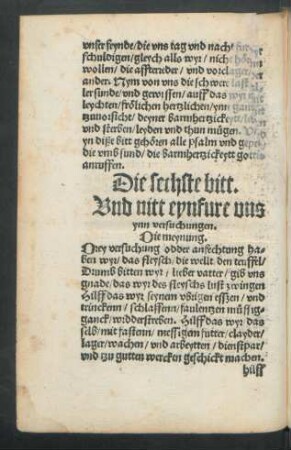 vnser feynde/die vns tag vnd nacht
schuldigen/gleych alls wyr/ nicht hören
wollen/ die affterreder/ vnd vorclager
ander. Nym von vns die schwer last al
ler sunde/vnd gewissen/ auff das wyr mit
leychten/frölichen hertzlichen/ynn gantzer
tzuuorsicht/ deyner barmhertzickeytt/ leben
vnd sterben/ leyden vnd thun mügen.
yn diße bitt gehören alle psalm vnd gepet
die vmb sund/ die barmhertzickeytt gottis
anruffen.
Die sechste bitt.
Vnd nitt eynfure vns
ynn versuchungen.
Die meynung.
Drey versuchung odder anfechtung ha-
ben wyr/ das fleysch/ die wellt den teuffel/
Drumb bitten wyr/ lieber vatter/ gib vns
gnade/ das wyr des fleyschs lust zwingen
Hilff das wyr seynem vbrigen essen/ vnd
trincken/ schlaffenn/ faulentzen müssig-
ganck/ widderstreben. Hilff das wyr das
selb/ mit fastenn/ messigem futter/clayder/
lager/wachen/ vnd arbeytten/ dienstpar/
vnd tzu gutten wercken geschickt machen.
hilff